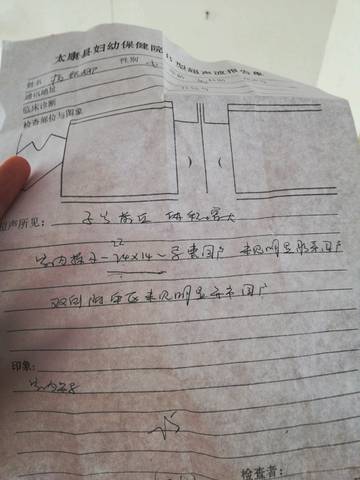 太康县妇幼保健院B型超声波报告单
姓名 性别 女
通讯地址
临床诊断
检查部位与图象
超声所见： 子宫前位 体积增大
宫内探及一24×14 孕囊回声 未见明显胚芽回声
22
双侧附件区未见明显异常回声
印象：
宫内早孕
检查者：